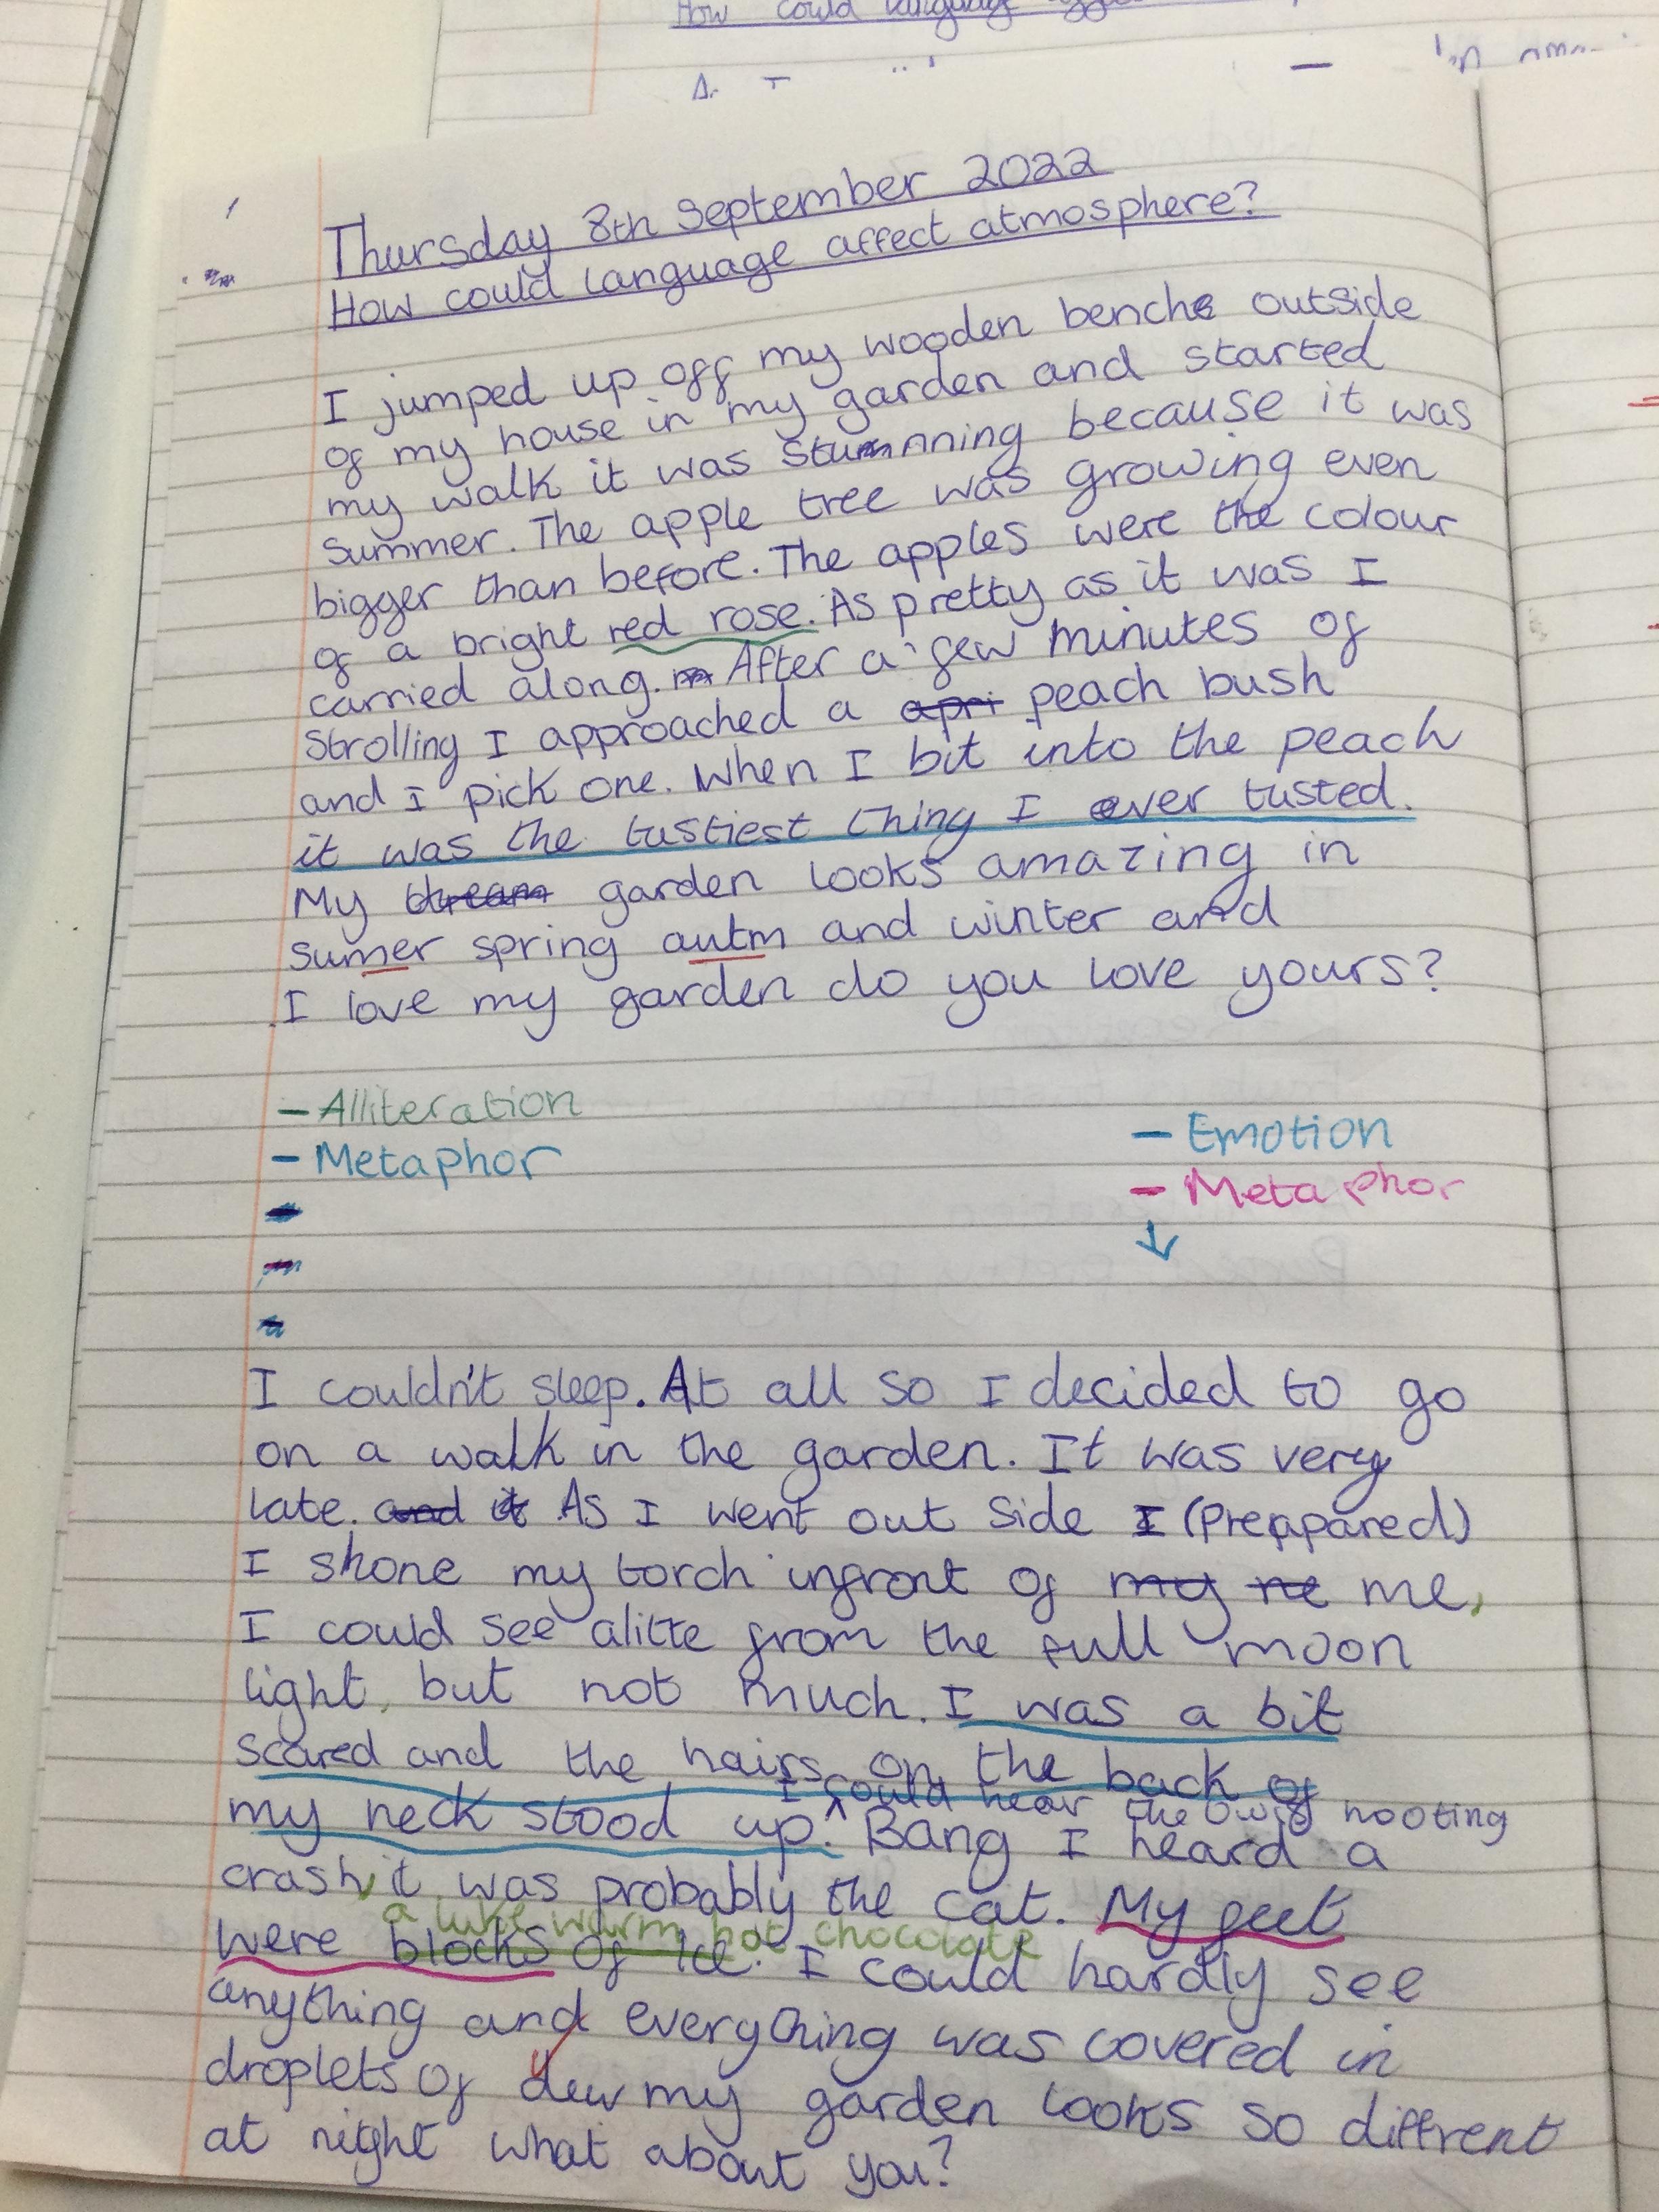 How could language
Thursday 8th September 2022
How could language affect atmosphere?
I jumped up off my wooden bench outside
of my house in my garden and started
my walk it was stunning because it was
summer. The apple tree was growing even
bigger than before. The apples were the colour
of a bright red rose. As pretty as it was I
carried along. After a few minutes of
strolling I approached a apri peach bush
and I pick one. When I bit into the peach
it was the tastiest thing I ever tasted.
My stream garden looks amazing in
sumer spring autm and winter and
I love my garden do you love yours?
- Alliteration
- Metaphor
- Emotion
- Metaphor
I couldn't sleep. At all so I decided to go
on a walk in the garden. It was very
late. and it As I went out side I (preppared)
I shone my torch infront of my me me,
I could see alitte from the full moon
light, but not much. I was a bit
scared and the hairs on the back of
I could hear the owls hooting
my neck stood up. Bang I heard a
crash, it was probably the cat. My feet
a luke warm hot chocolate
were blocks of ice. I could hardly see
anything and everything was covered in
droplets of dew my garden looks so diffrent
at night what about you?